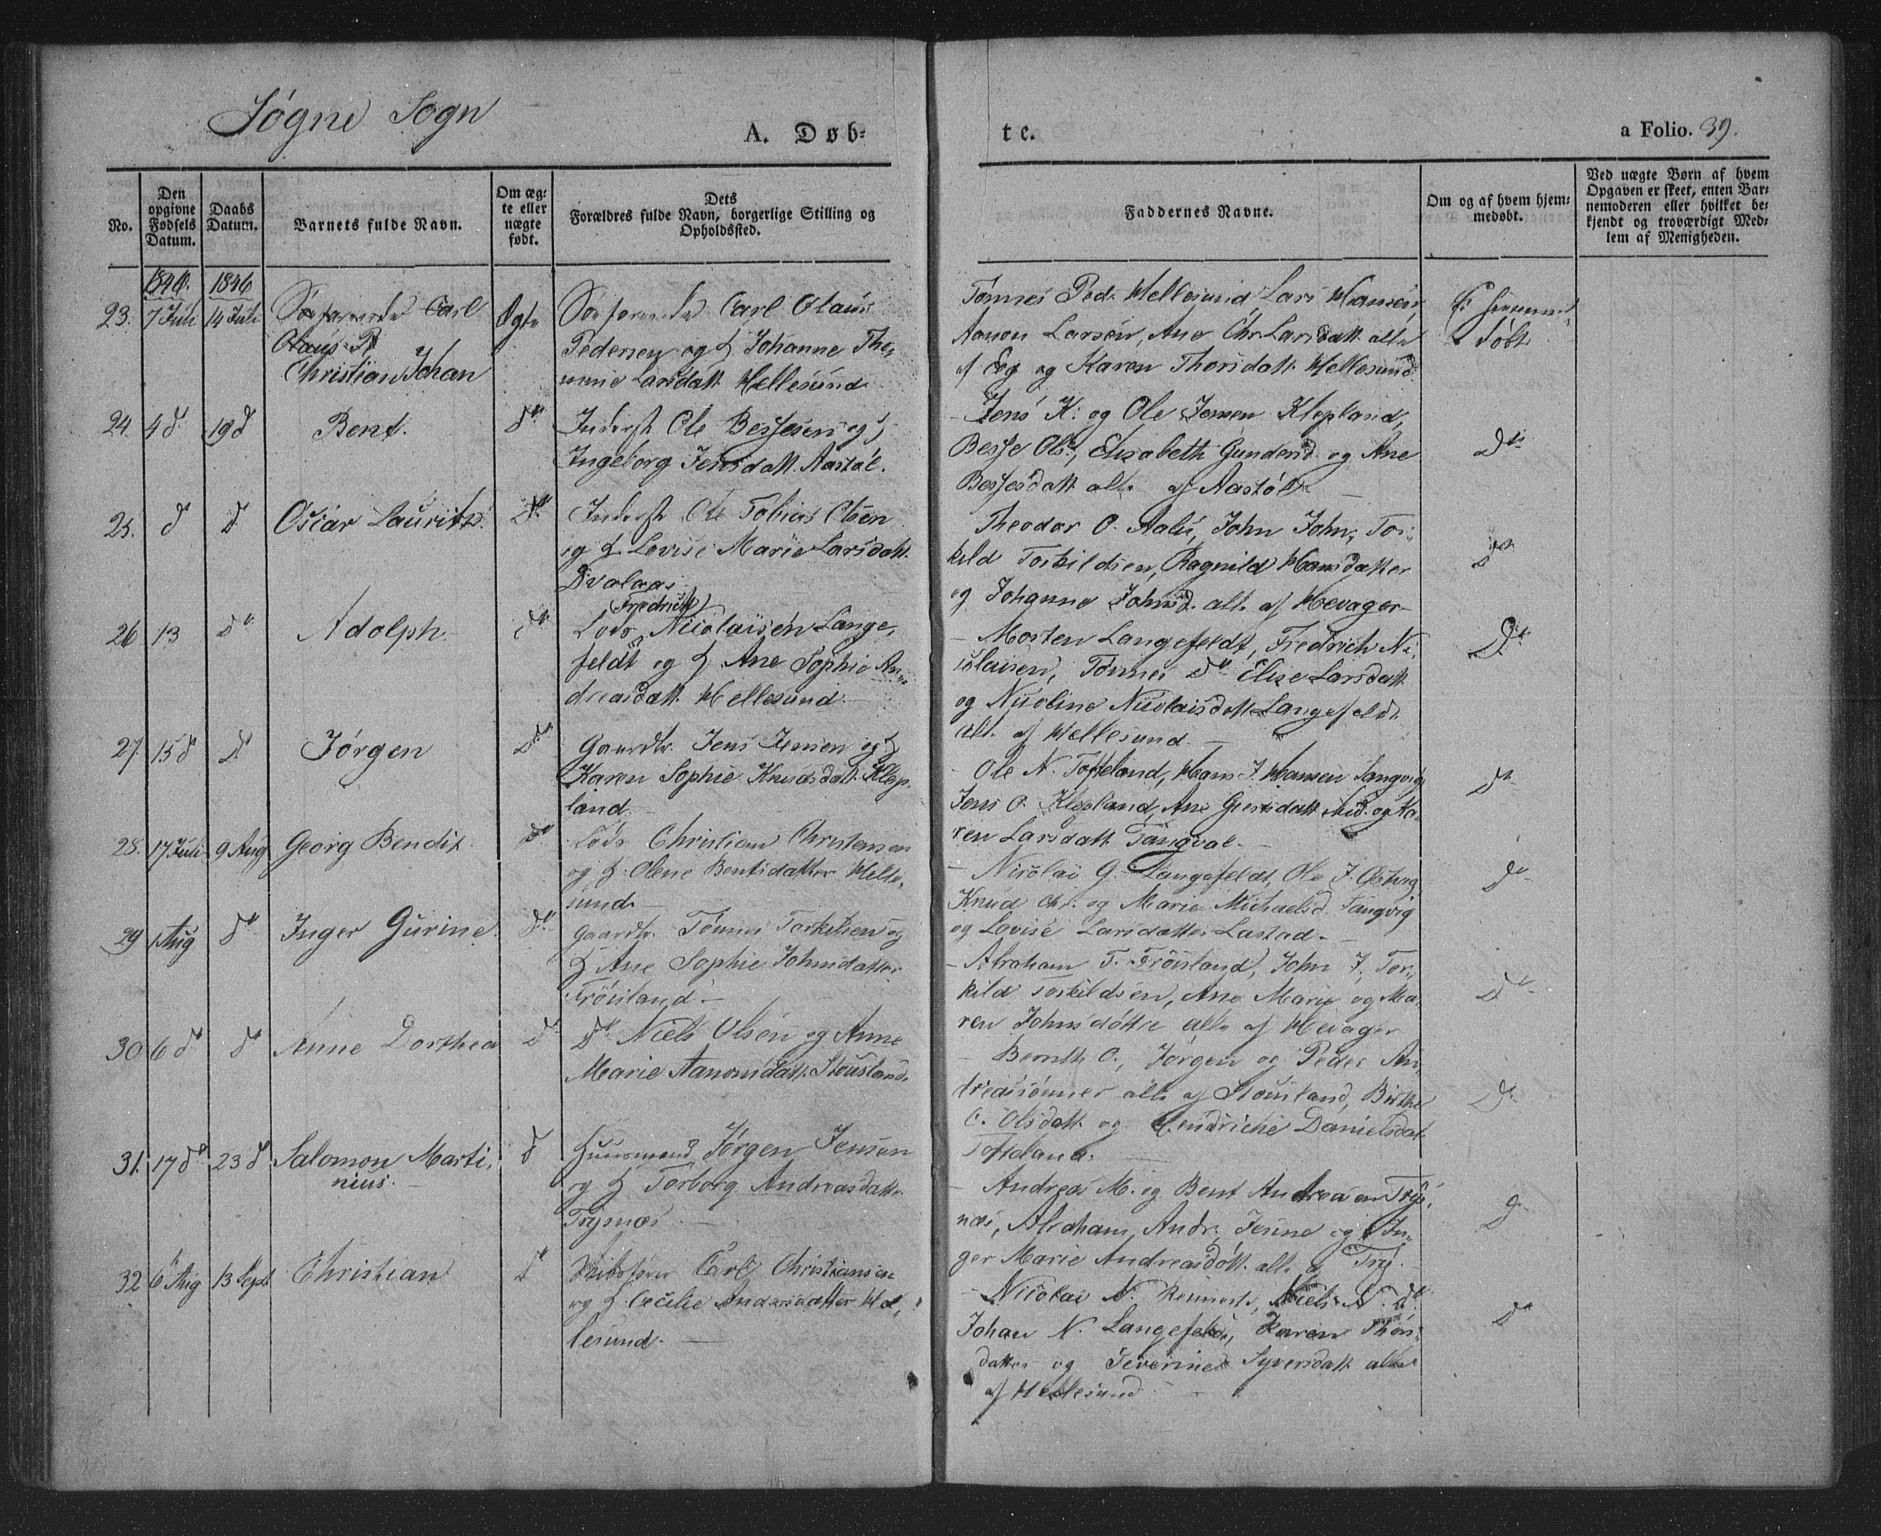 Søgne Sogn
A. Døb-
te.
a Folio. 39.
No.
Den opgivne Fødsels Datum.
Daabs Datum.
Barnets fulde Navn.
Om ægte eller nægte født.
Dets Forældres fulde Navn, borgerlige Stilling og Opholdssted.
Faddernes Navne.
Om og af hvem hjemmedøbt.
Ved nægte Børn af hvem Opgaven er skeet, enten Barnemoderen eller hvilket bekjendt og troværdigt Medlem af Menigheden.
1846. 1846
23. 7 Juli 14 Juli Søefarende Carl Ægte Søefarende Carl Olaus
Olaus P
Christian Johan
Pedersen og H Johanne Tho-
mine Larsdatt. Hellesund
Tønnes Ped. Hellesund Lars Hansen,
Aanon Larsen, Ane Chr. Larsdatt. alle
af Eeg og Karen Thorsdatt. Hellesund
døbt
24. 4 d 19 d Bent. do Inderst Ole Bessesen og H
Ingeborg Jensdatt. Aastøl.
Jens K: og Ole Jensen Klepland,
Besse Ols:, Elisabeth Gundersd. og Ane
Bessesdatt alle af Aastøl
do
25. d d Oscar Lauritz. do Inderst Ole Tobias Olsen
og H Lovise Marie Larsdatt.
Dvalaas
Theodor O. Aalu, John John, Tor-
kild Torkildsen, Ragnild Hansdatter
og Johanne Johnsd. alle af Hevager
do
26 13 do Adolph. do Lods (Fredrich) Nicolaisen Lange-
feldt og H Ane Sophie An-
dreasdatt. Hellesund
Morten Langefeldt, Fredrich Ni-
colaisen, Tønnes do Elise Larsdatt
og Nicoline Nicolaisdatt Langefeldt
alle af Hellesund
do
27. 15 d d Jørgen do Gaardbr. Jens Jensen og H
Karen Sophie Knudsdatt. Klep-
land
Ole N. Tofteland, Hans J Hansen Langvig
Jens O. Klepland, Ane Gjertsdatt og Ka-
ren Larsdatt Tangval
do
28. 17 Juli 9 Aug Georg Bendix do Lods Christian Christensen
og H. Olene Bentsdatter Helle-
sund
Nicolai G. Langefeldt, Ole J
Knud Chr. og Marie Michaelsd. Langvig
og Lovise Larsdatter Lastad
do
29 1 Aug do Inger Gurine do Gaardbr. Tønnes Torkelsen og
H Ane Sophie Johnsdatter
Trøisland
Abraham T. Trøisland, John J, Tor-
kild Torkildsen, Ane Marie og Ma-
ren Johnsdøttre alle af Hevager
do
30 6 d do Anne Dorthea d do Niels Olsen og Anne
Marie Aanonsdatt. Stousland
Bernth O., Jørgen og Peder An-
dreassønner alle af Stousland, Birthe
O. Olsdatt og Hendriche Danielsdatt
Tofteland
do
31. 17 do 23 d Salomon Marti-
nius.
d Huusmand Jørgen Jensen
og H Torborg Andreasdatt.
Trysnæs
Andreas M. og Bent Andreasen Trys-
næs, Abraham Andr. Jenine og In-
ger Marie Andreasdøtt. alle af Try.
d
32 6 Aug 13 Sept Christian d Skibsfører Carl Christiansen
og H Cecilie Andersdatter Hel-
lesund.
Nicolai N. Reimert, Niels N. do
Johan N. Langefeldt, Karen Thors-
datter og Severine Syversdatt alle
af Hellesund
do